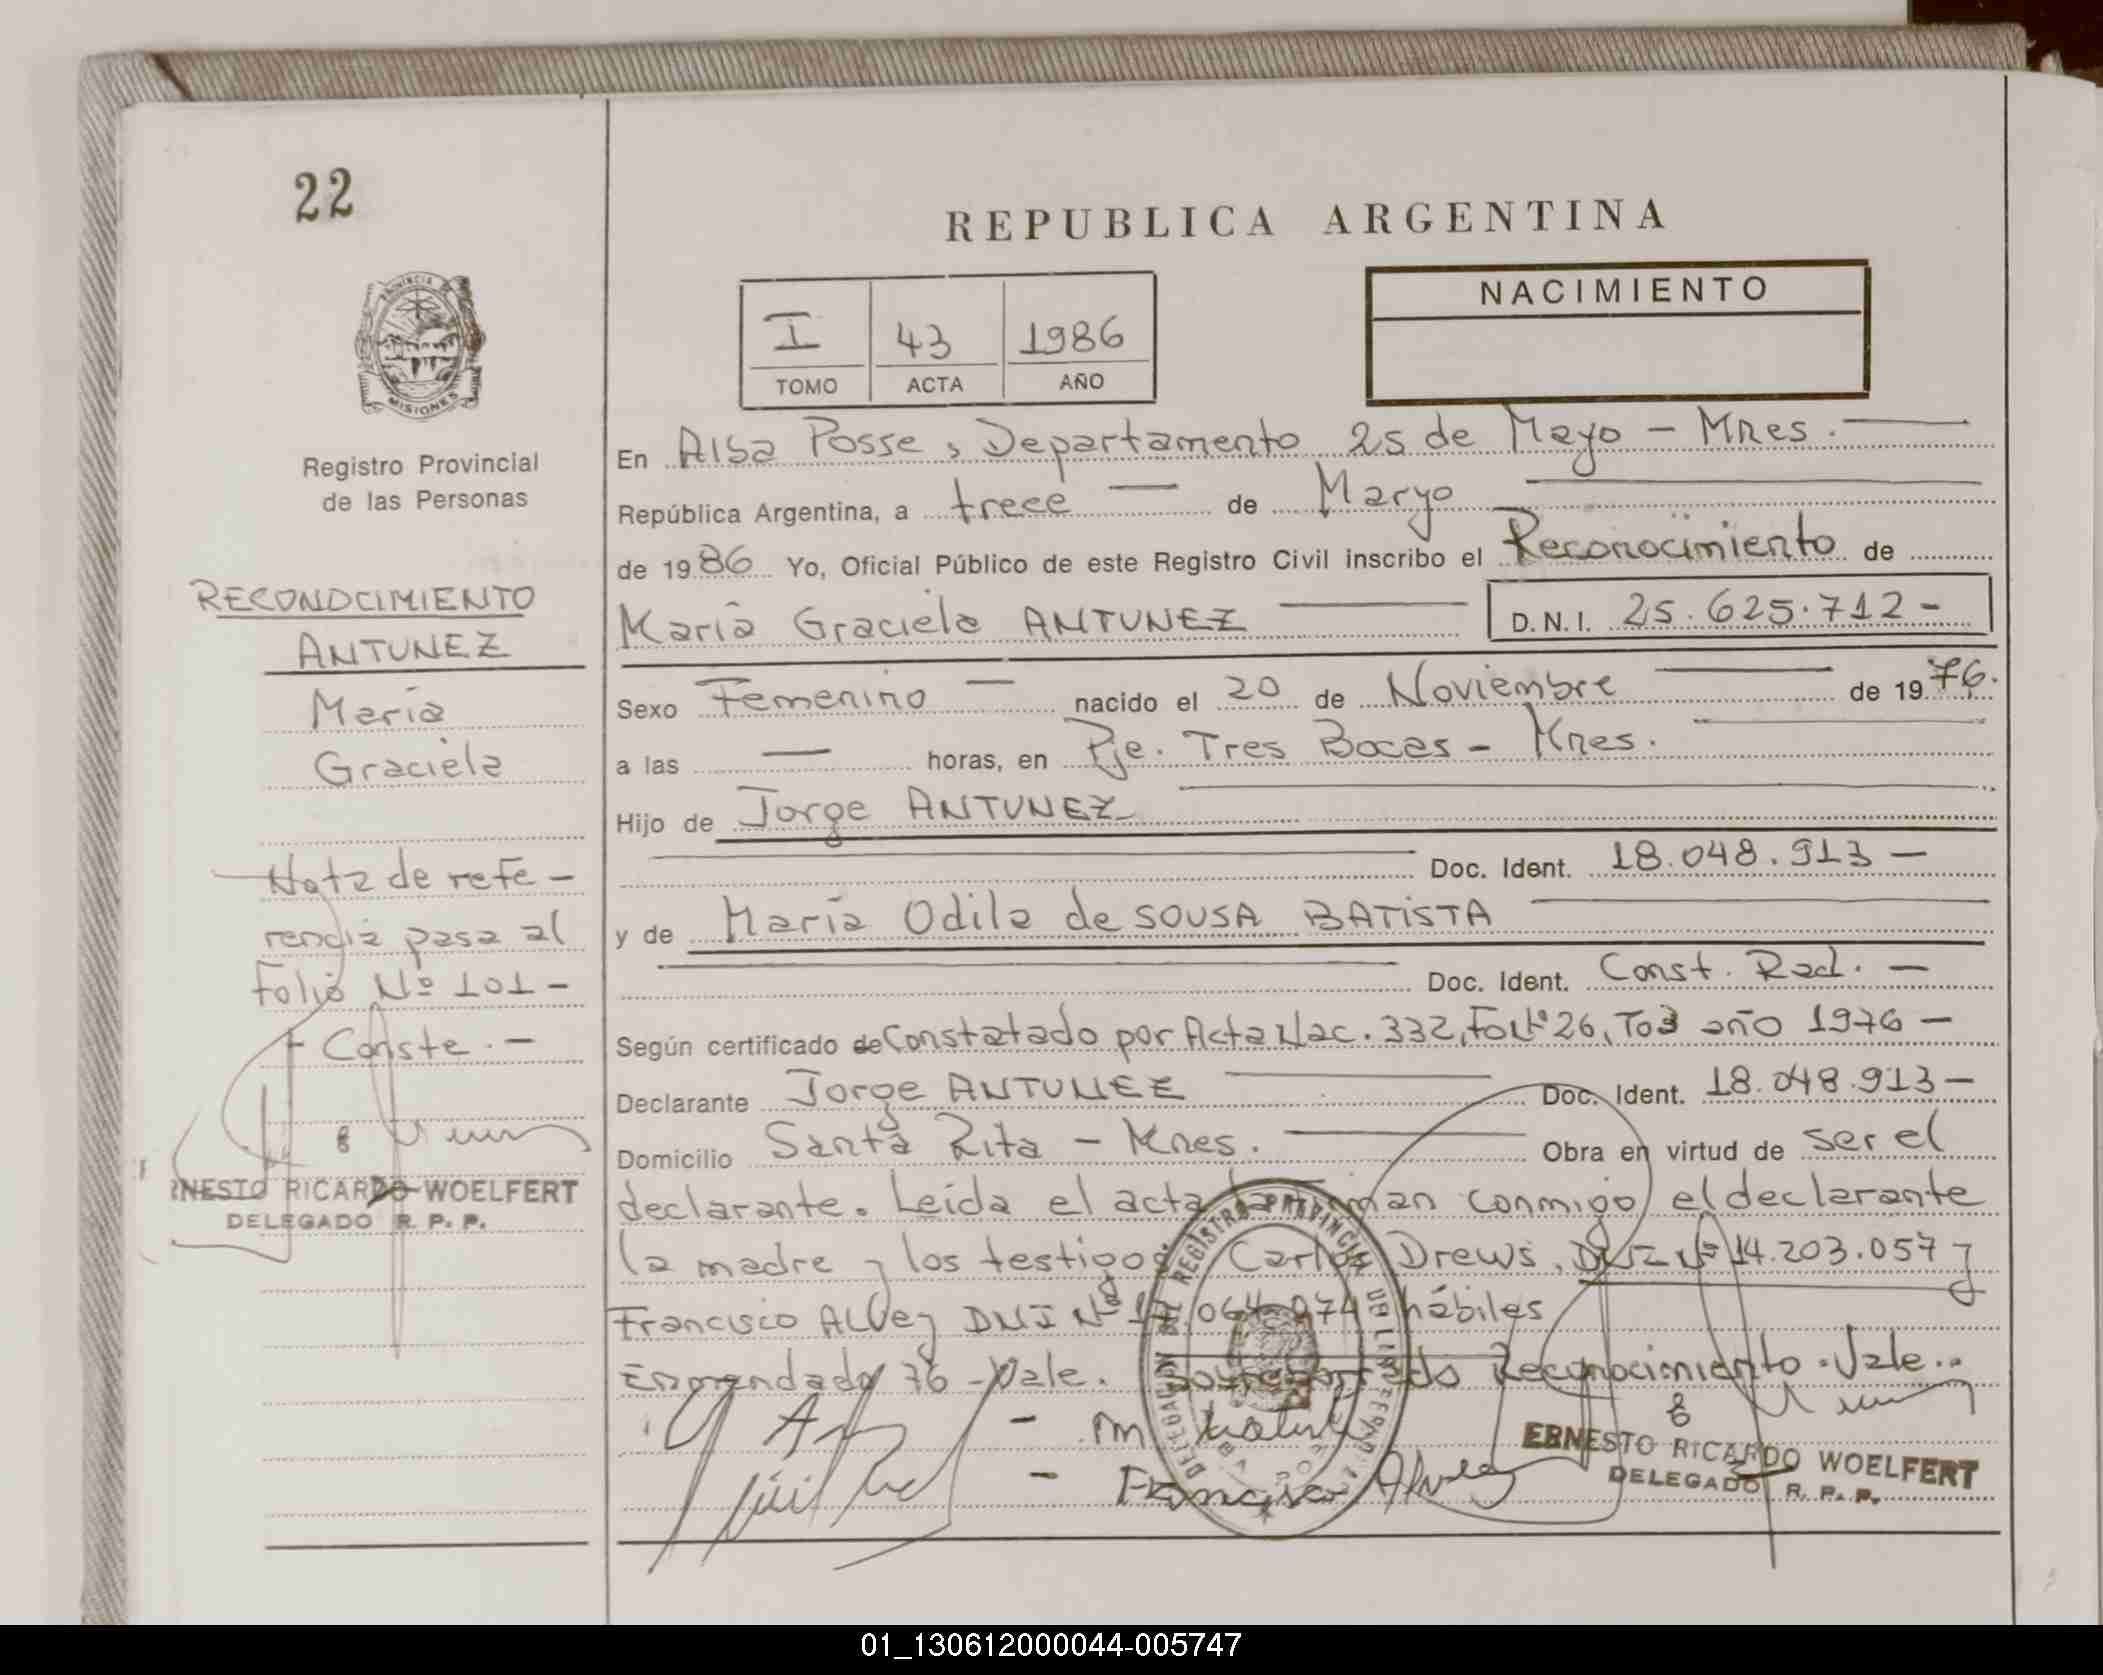 22
REPUBLICA ARGENTINA
NACIMIENTO
I 43 1986
TOMO ACTA AÑO
PROVINCIA DE
MISIONES
Registro Provincial
de las Personas
RECONOCIMIENTO
ANTUNEZ
María
Graciela
Nota de refe-
rencia pasa al
folio Nº 101-
Conste.-
ERNESTO RICARDO WOELFERT
DELEGADO R. P. P.
En Alba Posse, Departamento 25 de Mayo - Mnes.
República Argentina, a trece de Marzo
de 1986 Yo, Oficial Público de este Registro Civil inscribo el Reconocimiento de
María Graciela ANTUNEZ D.N.I. 25.625.712-
Sexo Femenino nacido el 20 de Noviembre de 1976.
a las — horas, en Pje. Tres Bocas - Mnes.
Hijo de Jorge ANTUNEZ
Doc. Ident. 18.048.913 -
y de María Odila de SOUSA BATISTA
Doc. Ident. Const. Rad. -
Según certificado de Constatado por Acta Nac. 332, Folº 26, To3 año 1976 -
Declarante Jorge ANTUNEZ Doc. Ident. 18.048.913-
Domicilio Santa Rita - Mnes. Obra en virtud de ser el
declarante. Leida el acta la firman conmigo el declarante
la madre y los testigos: Carlos Drews, DNI Nº 14.203.057 y
Francisco ALVez DNI Nº hábiles
Enmendado 76 - Vale. Sobreborrado Reconocimiento. Vale..
Francisco Alvez
DELEGACION DEL REGISTRO PROVINCIAL DE LAS PERSONAS
ALBA POSSE
ERNESTO RICARDO WOELFERT
DELEGADO R. P. P.
01_130612000044-005747